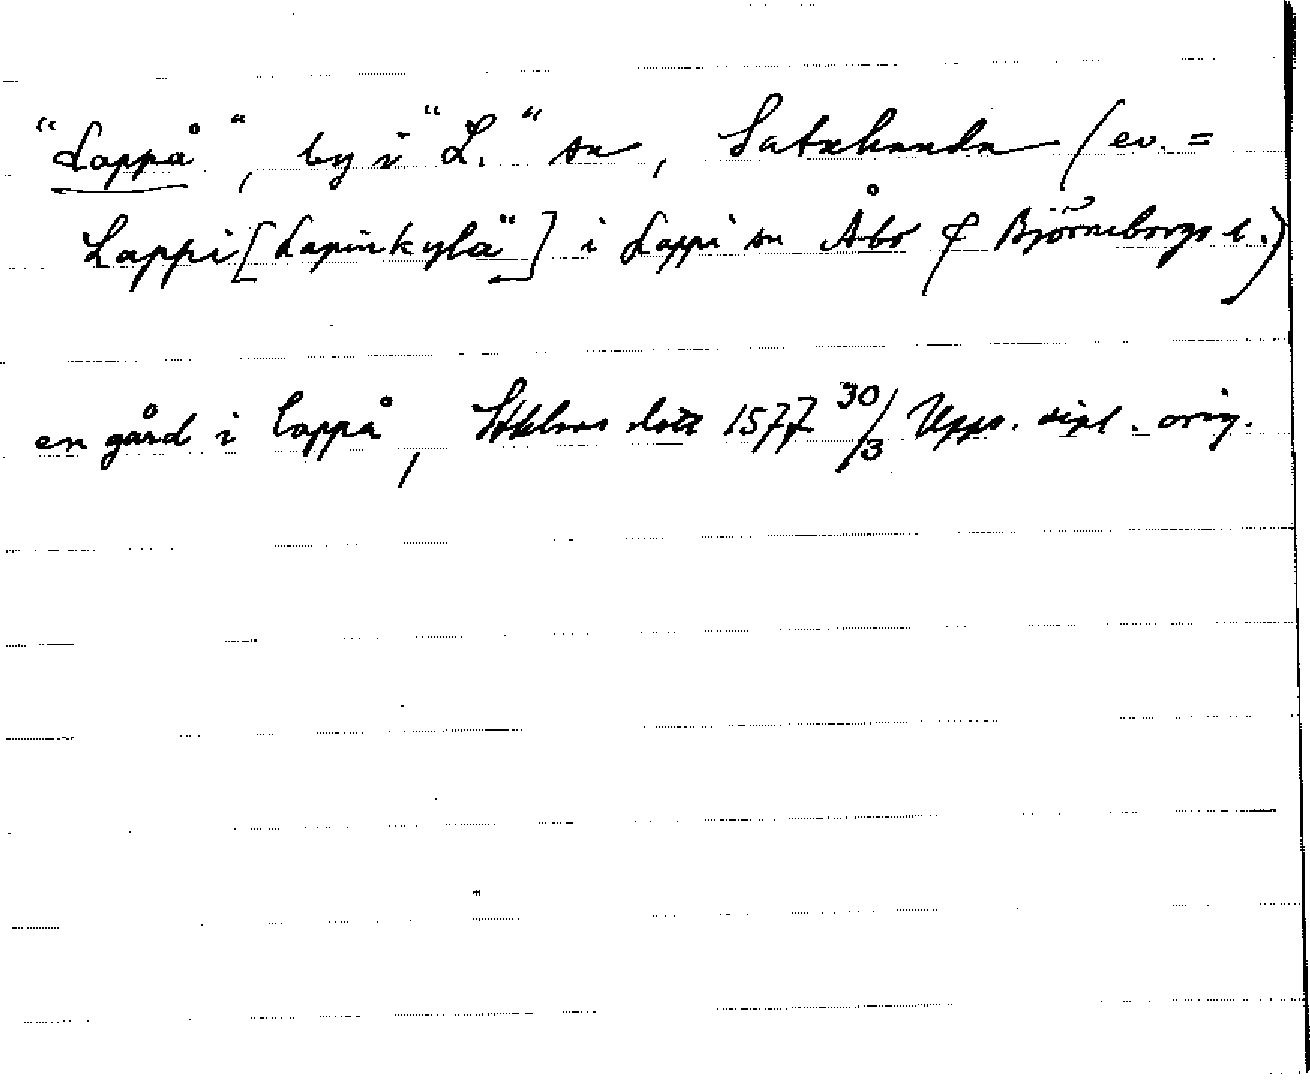 "Lappå", by i "L." sn, Satakunda (ev. =
Lappi [Lapinkylä] i Lappi sn Åbo & Björneborgs l.)
en gård i Lappå, Sthlms slott 1577 30/3 Upps. dipl. orig.